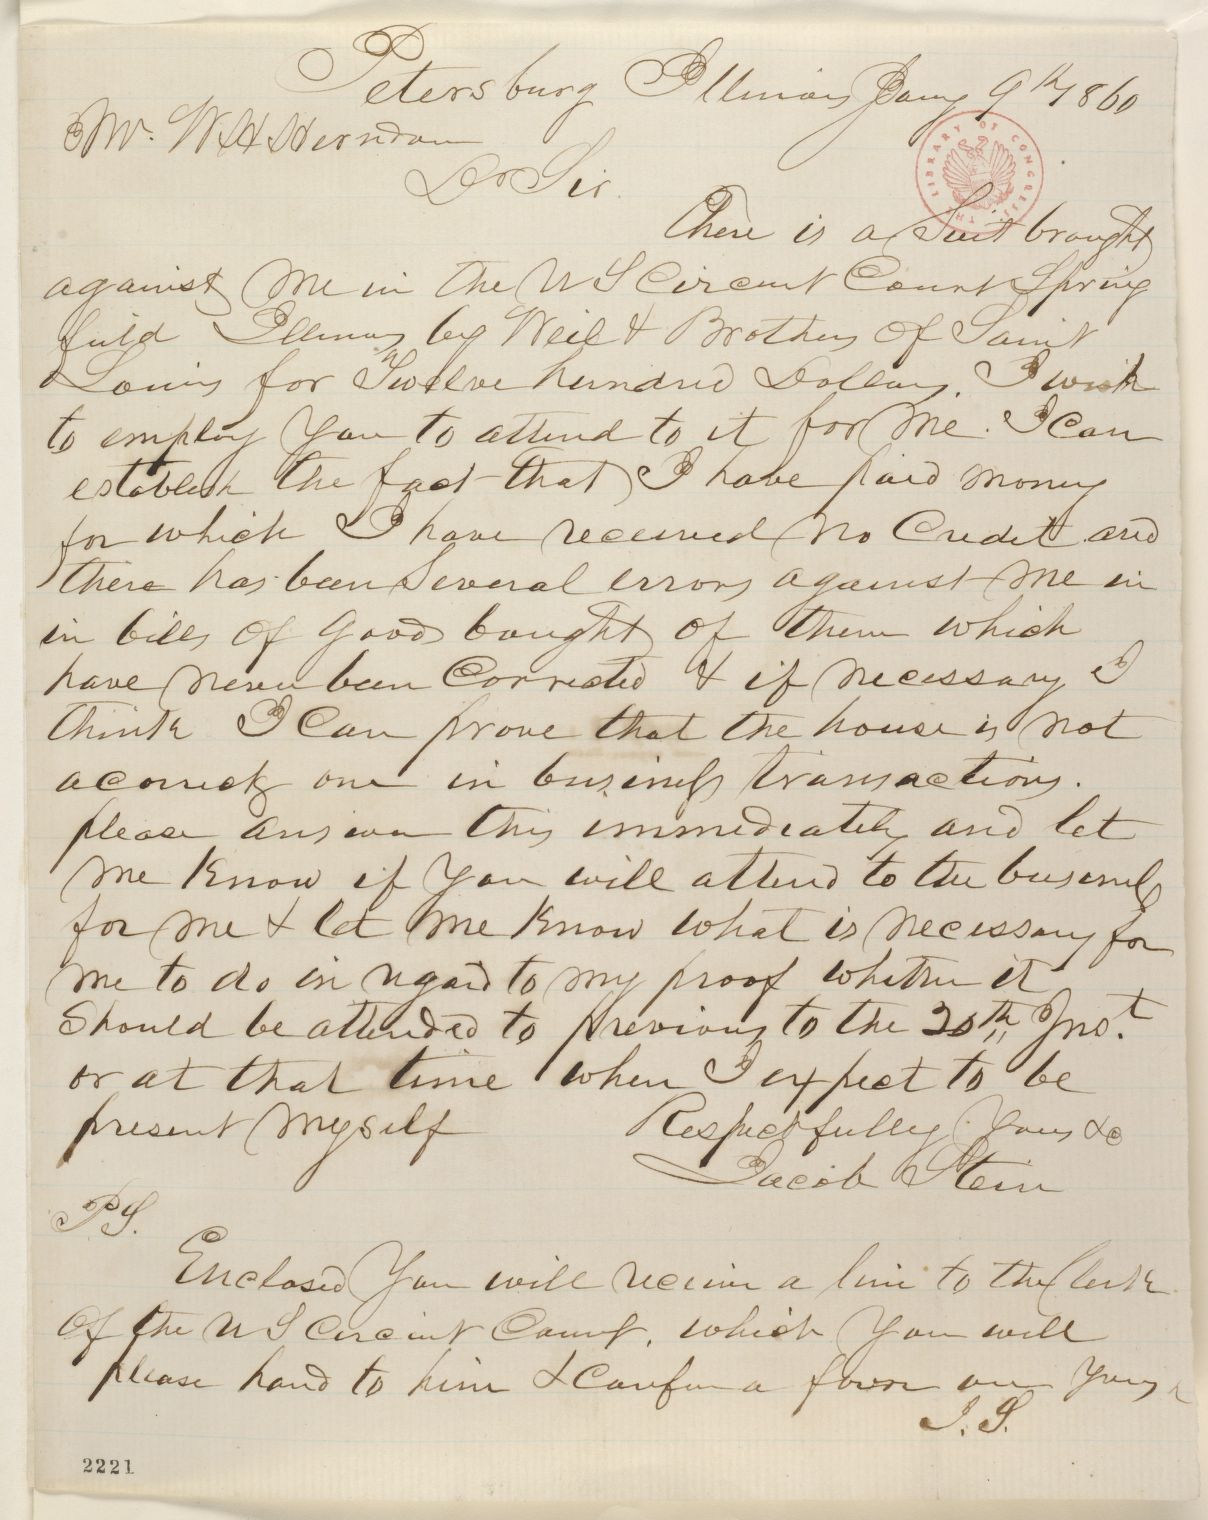 Petersburg Illinois Jany 9th 1860
Mr. W H Herndon
Dr Sir.
There is a Suit brought
against me in the U S Circuit Court Spring
field Illinois by Weil & Brothers of Saint
Louis for Twelve hundred Dollars. I wish
to employ you to attend to it for me. I can
establish the fact that I have paid money
for which I have received no Credit and
there has been Several errors against me in
in bills of goods bought of them which
have never been Corrected & if necessary I
think I Can prove that the house is not
a correck one in business transactions.
please answer this immediately and let
me know if you will attend to the business
for me & let me know what is necessary for
me to do in regard to my proof whether it
Should be attended to previous to the 20th Inst.
or at that time when I expect to be
present myself
Respectfully Yours &c
Jacob Stein
P S.
Enclosed you will receive a line to the Clerk
Of the U S Circuit Court, which you will
please hand to him & Confer a favor on yours
J. S.
THE LIBRARY OF CONGRESS
2221